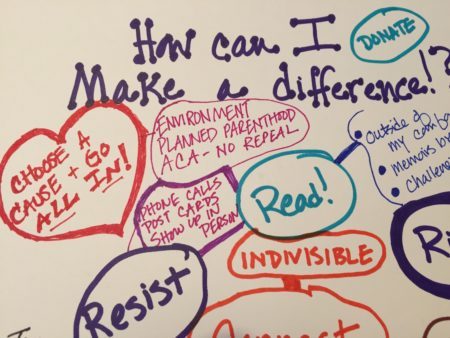 How can I
DONATE
Make a difference!?
CHOOSE A
CAUSE + GO
ALL IN!
ENVIRONMENT
PLANNED PARENTHOOD
ACA - NO REPEAL
PHONE CALLS
POST CARDS
SHOW UP IN
PERSON
Read!
outside of
my
memoirs
Resist
INDIVISIBLE